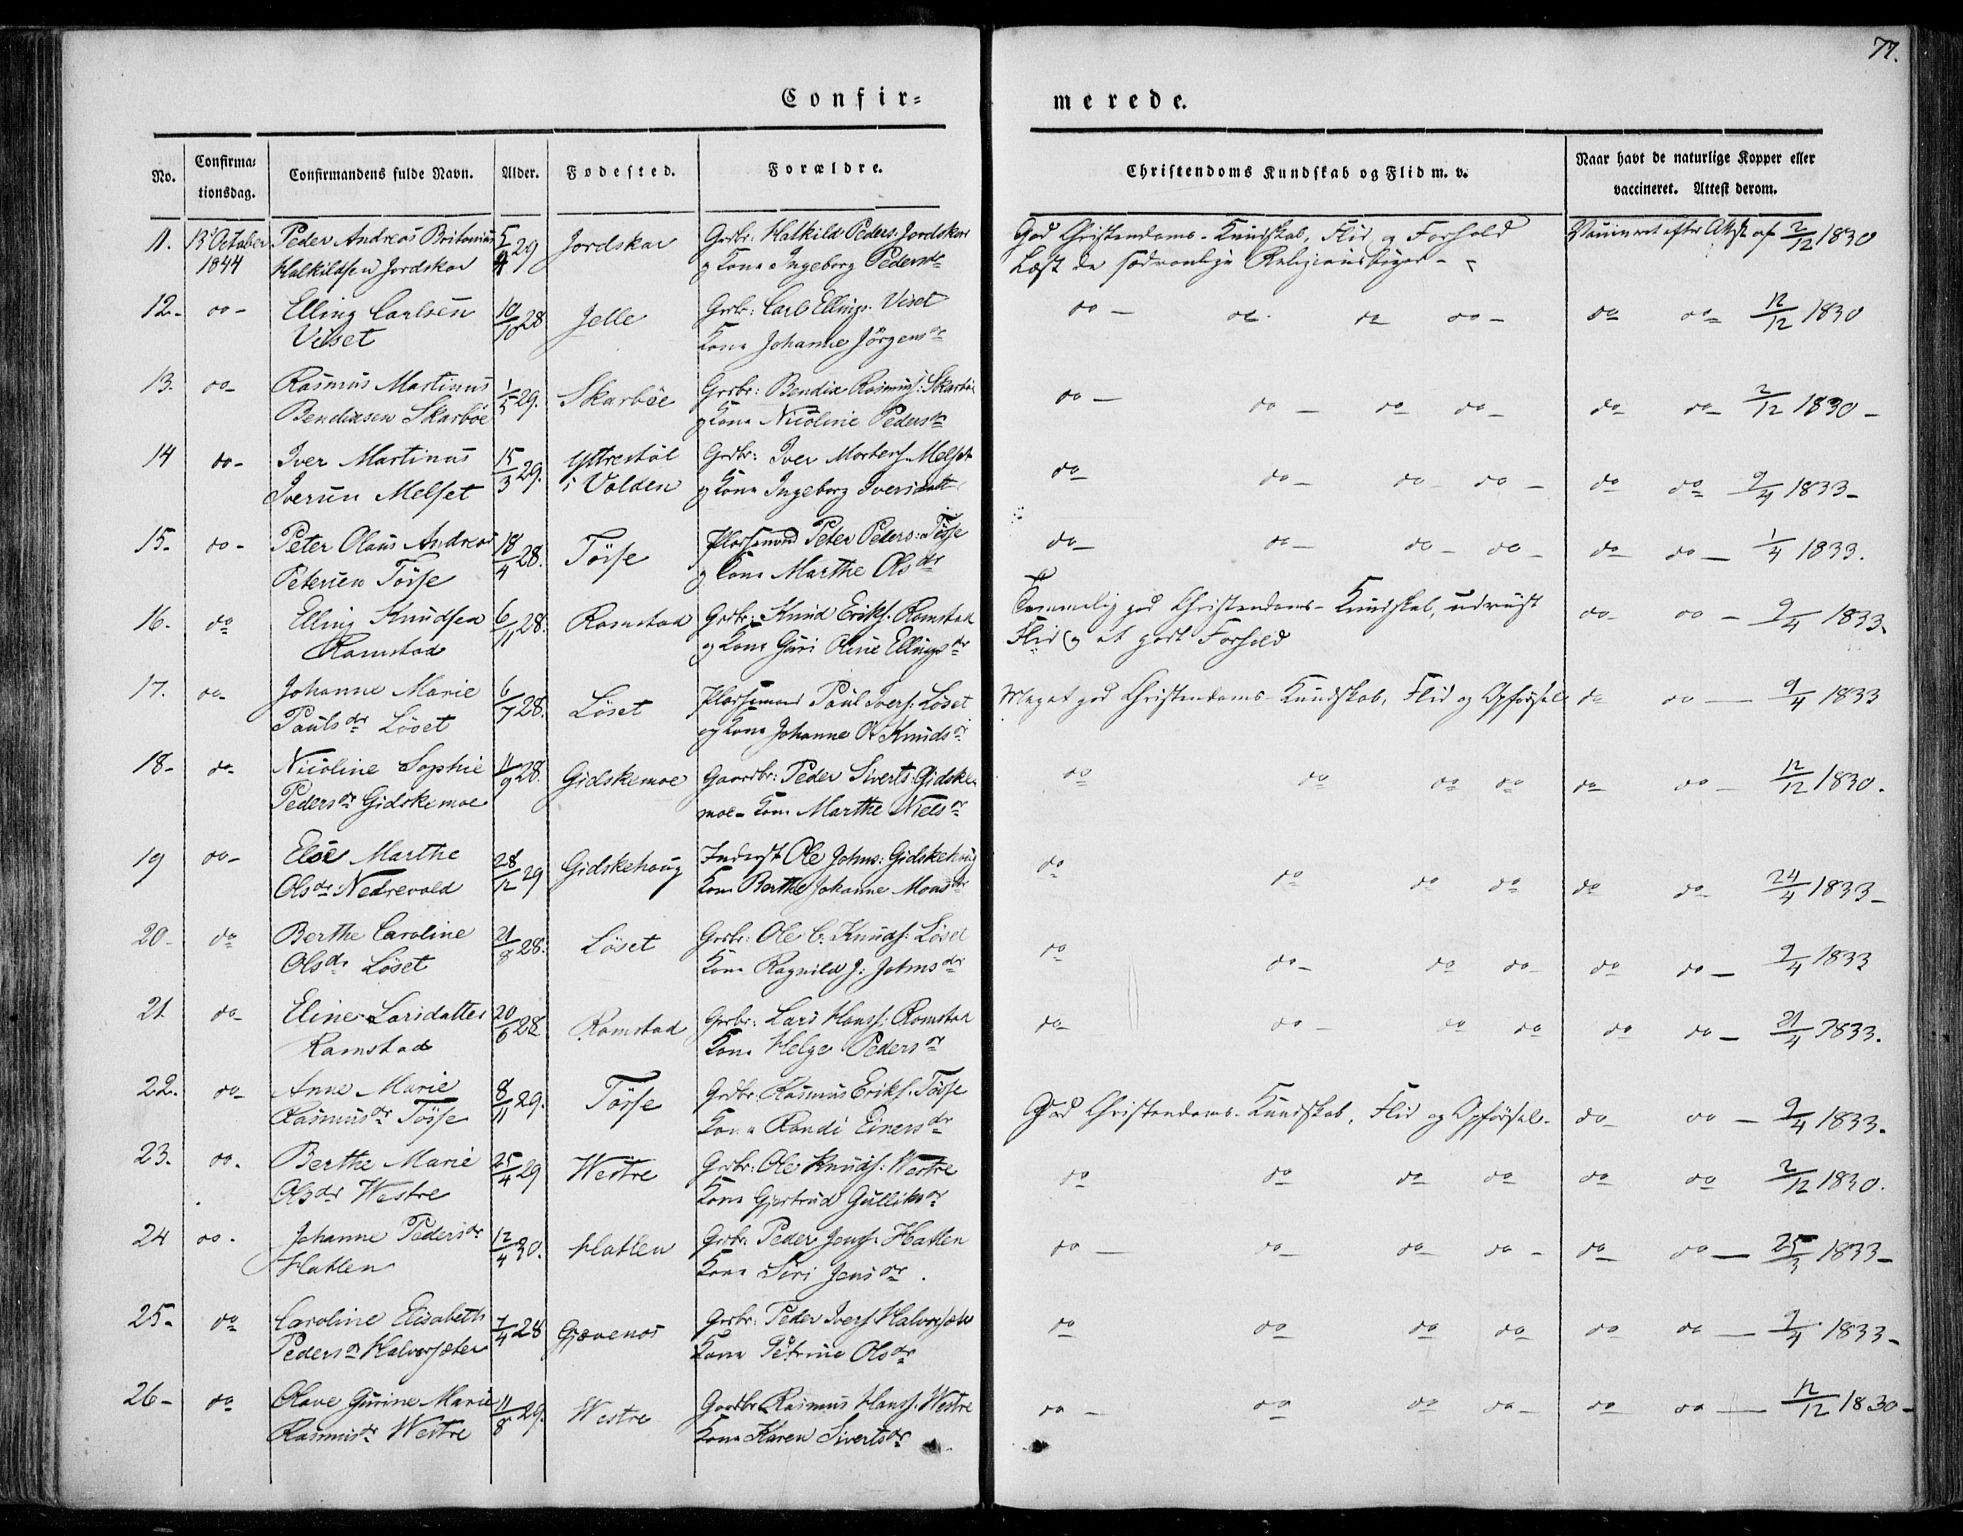 77.
Confir=
merede.
No.
Confirma=
tionsdag.
Confirmandens fulde Navn.
Alder.
Fødested.
Forældre.
Christendoms Kundskab og Flid m. v.
Naar havt de naturlige Kopper eller
vaccineret. Attest derom.
11. 13 October Peder Andreas 5/4 29 Jordskar Grbr: Halkild Peders: Jordskar God Christendoms-Kundskab, Flid og Forhold Vaccineret efter Attest af 2/12 1830
1844 Halkildsen Jordskar og Kone Ingeborg Pedersdr Læst de sædvanlige Religionsbøger
12. do Elling Carlsen 10/10 28 Jelle Grbr: Carl Ellings. Viset do do do do do do 12/12 1830
Viset Kone Johanne Jörgensdr
13. do Rasmus Martinus 1/5 29. Skarböe Grbr: Bendix Rasmuss: Skarböe do do do do do do 2/12 1830
Bendixsen Skarböe og Kone Nicoline Pedersdr
14 do Iver Martinus 15/3 29. Yttrestöl Grbr: Iver Mortens. Melset do do do do do do 9/4 1833
Iversen Melset i Volden og Kone Ingeborg Iversdatt
15. do Peter Olaus Andreas 18/4 28. Törse Pladsmand Peter Peders: Törse do do do do do do 1/4 1833.
Petersen Törse og Kone Marthe Olsdr
16. do Elling Knudsen 6/11 28. Ramstad Grbr: Knud Eriks. Ramstad Temmelig god Christendoms-Kundskab, udviist do do 9/4 1833
Ramstad og Kone Guri Oline Ellingsdr Flid og et godt Forhold
17. do Johanne Marie 6/7 28. Löset Pladsemand Paul Ivers. Löset Meget god Christendoms Kundskab, Flid og Opförsel do do 9/4 1833
Paulsdr Löset og Kone Johanne O. Knudsdr
18 do Nicoline Sophie 11/9 28. Gidskemoe Gaardbr: Peder Siverts: Gidske do do do do do do 12/12 1830.
Pedersdr Gidskemoe moe Kone Marthe Nielsdr
19 do Else Marthe 28/12 29 Gidskehoug Inderst Ole Johns: Gidskehoug do do do do do do 24/4 1833
Olsdr Nedrevold Kone Berthe Johanne Monsdr
20 do Berthe Caroline 21/8 28. Löset Grbr: Ole C. Knuds: Löset do do do do do do 9/4 1833
Olsdr Löset Kone Ragnild J: Johnsdr
21 do Eline Larsdatter 20/6 28 Ramstad Grbr: Lars Hans: Ramstad do do do do do do 21/4 1833.
Ramstad Kone Helge Pedersdr
22. do Anne Marie 8/11 29. Törse Grdbr: Rasmus Eriks. Törse God Christendoms-Kundskab, Flid og Opförsel. do do 9/4 1833.
Rasmusdr Törse Kone Randi Einersdr
23. do Berthe Marie 25/4 29 Westre Grbr: Ole Knuds: Westre do do do do do do 2/12 1830.
Olsdr Westre Kone Gjertrud Gulliksdr
24 do Johanne Pedersdr 12/4 30. Hatlen Grbr: Peder Jens: Hatlen do do do do do do 25/3 1833
Hatlen Kone Siri Jensdr.
25. do Caroline Elisabeth 7/4 28 Gjævenes Grbr: Peder Ivers. Halvorsæter do do do do do do 9/4 1833
Pedersdr Halvorsæter Kone Petrine Olsdr
26 do Olave Gurine Marie 11/8 29. Westre Gardbr Rasmus Hans: Westre do do do do do do 12/12 1830
Rasmusdr Westre Kone Karen Sivertsdr